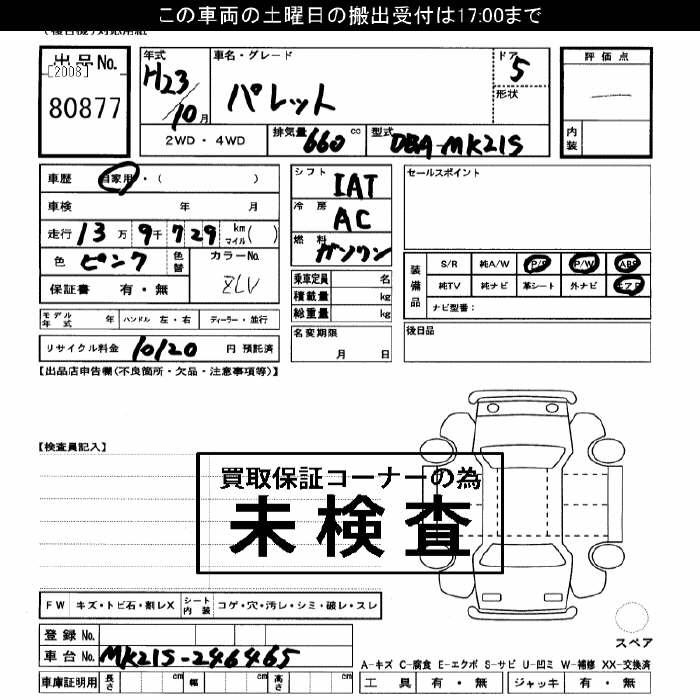 この車両の土曜日の搬出受付は17:00まで
出品No.
[2008]
80877
年式
H23/10月
車名・グレード
パレット
ドア
5
形状
評価点
内装
2WD・4WD
排気量 660 cc
型式 DBA-MK21S
車歴 自家用・( )
車検 年 月
走行 13万9千729 km マイル( )
色 ピンク 色替
カラーNo.
ZLV
保証書 有・無
シフト IAT
冷房 AC
燃料 ガソリン
乗車定員 名
積載量 kg
総重量 kg
セールスポイント
装備品
S/R 純A/W P/S P/W ABS
純TV 純ナビ 革シート 外ナビ エアB
ナビ型番:
モデル年式 年 ハンドル 左・右 ディーラー・並行
名変期限
月 日
後日品
リサイクル料金 10120 円 預託済
【出品店申告欄(不良箇所・欠品・注意事項等)】
【検査員記入】
買取保証コーナーの為
未検査
FW キズ・トビ石・割レX シート内装 コゲ・穴・汚レ・シミ・破レ・スレ
スペア
登録No.
車台No. MK21S-246465
A-キズ C-腐食 E-エクボ S-サビ U-凹ミ W-補修 XX-交換済
車庫証明用 長さ cm 幅 cm 高さ cm
工具 有・無 ジャッキ 有・無